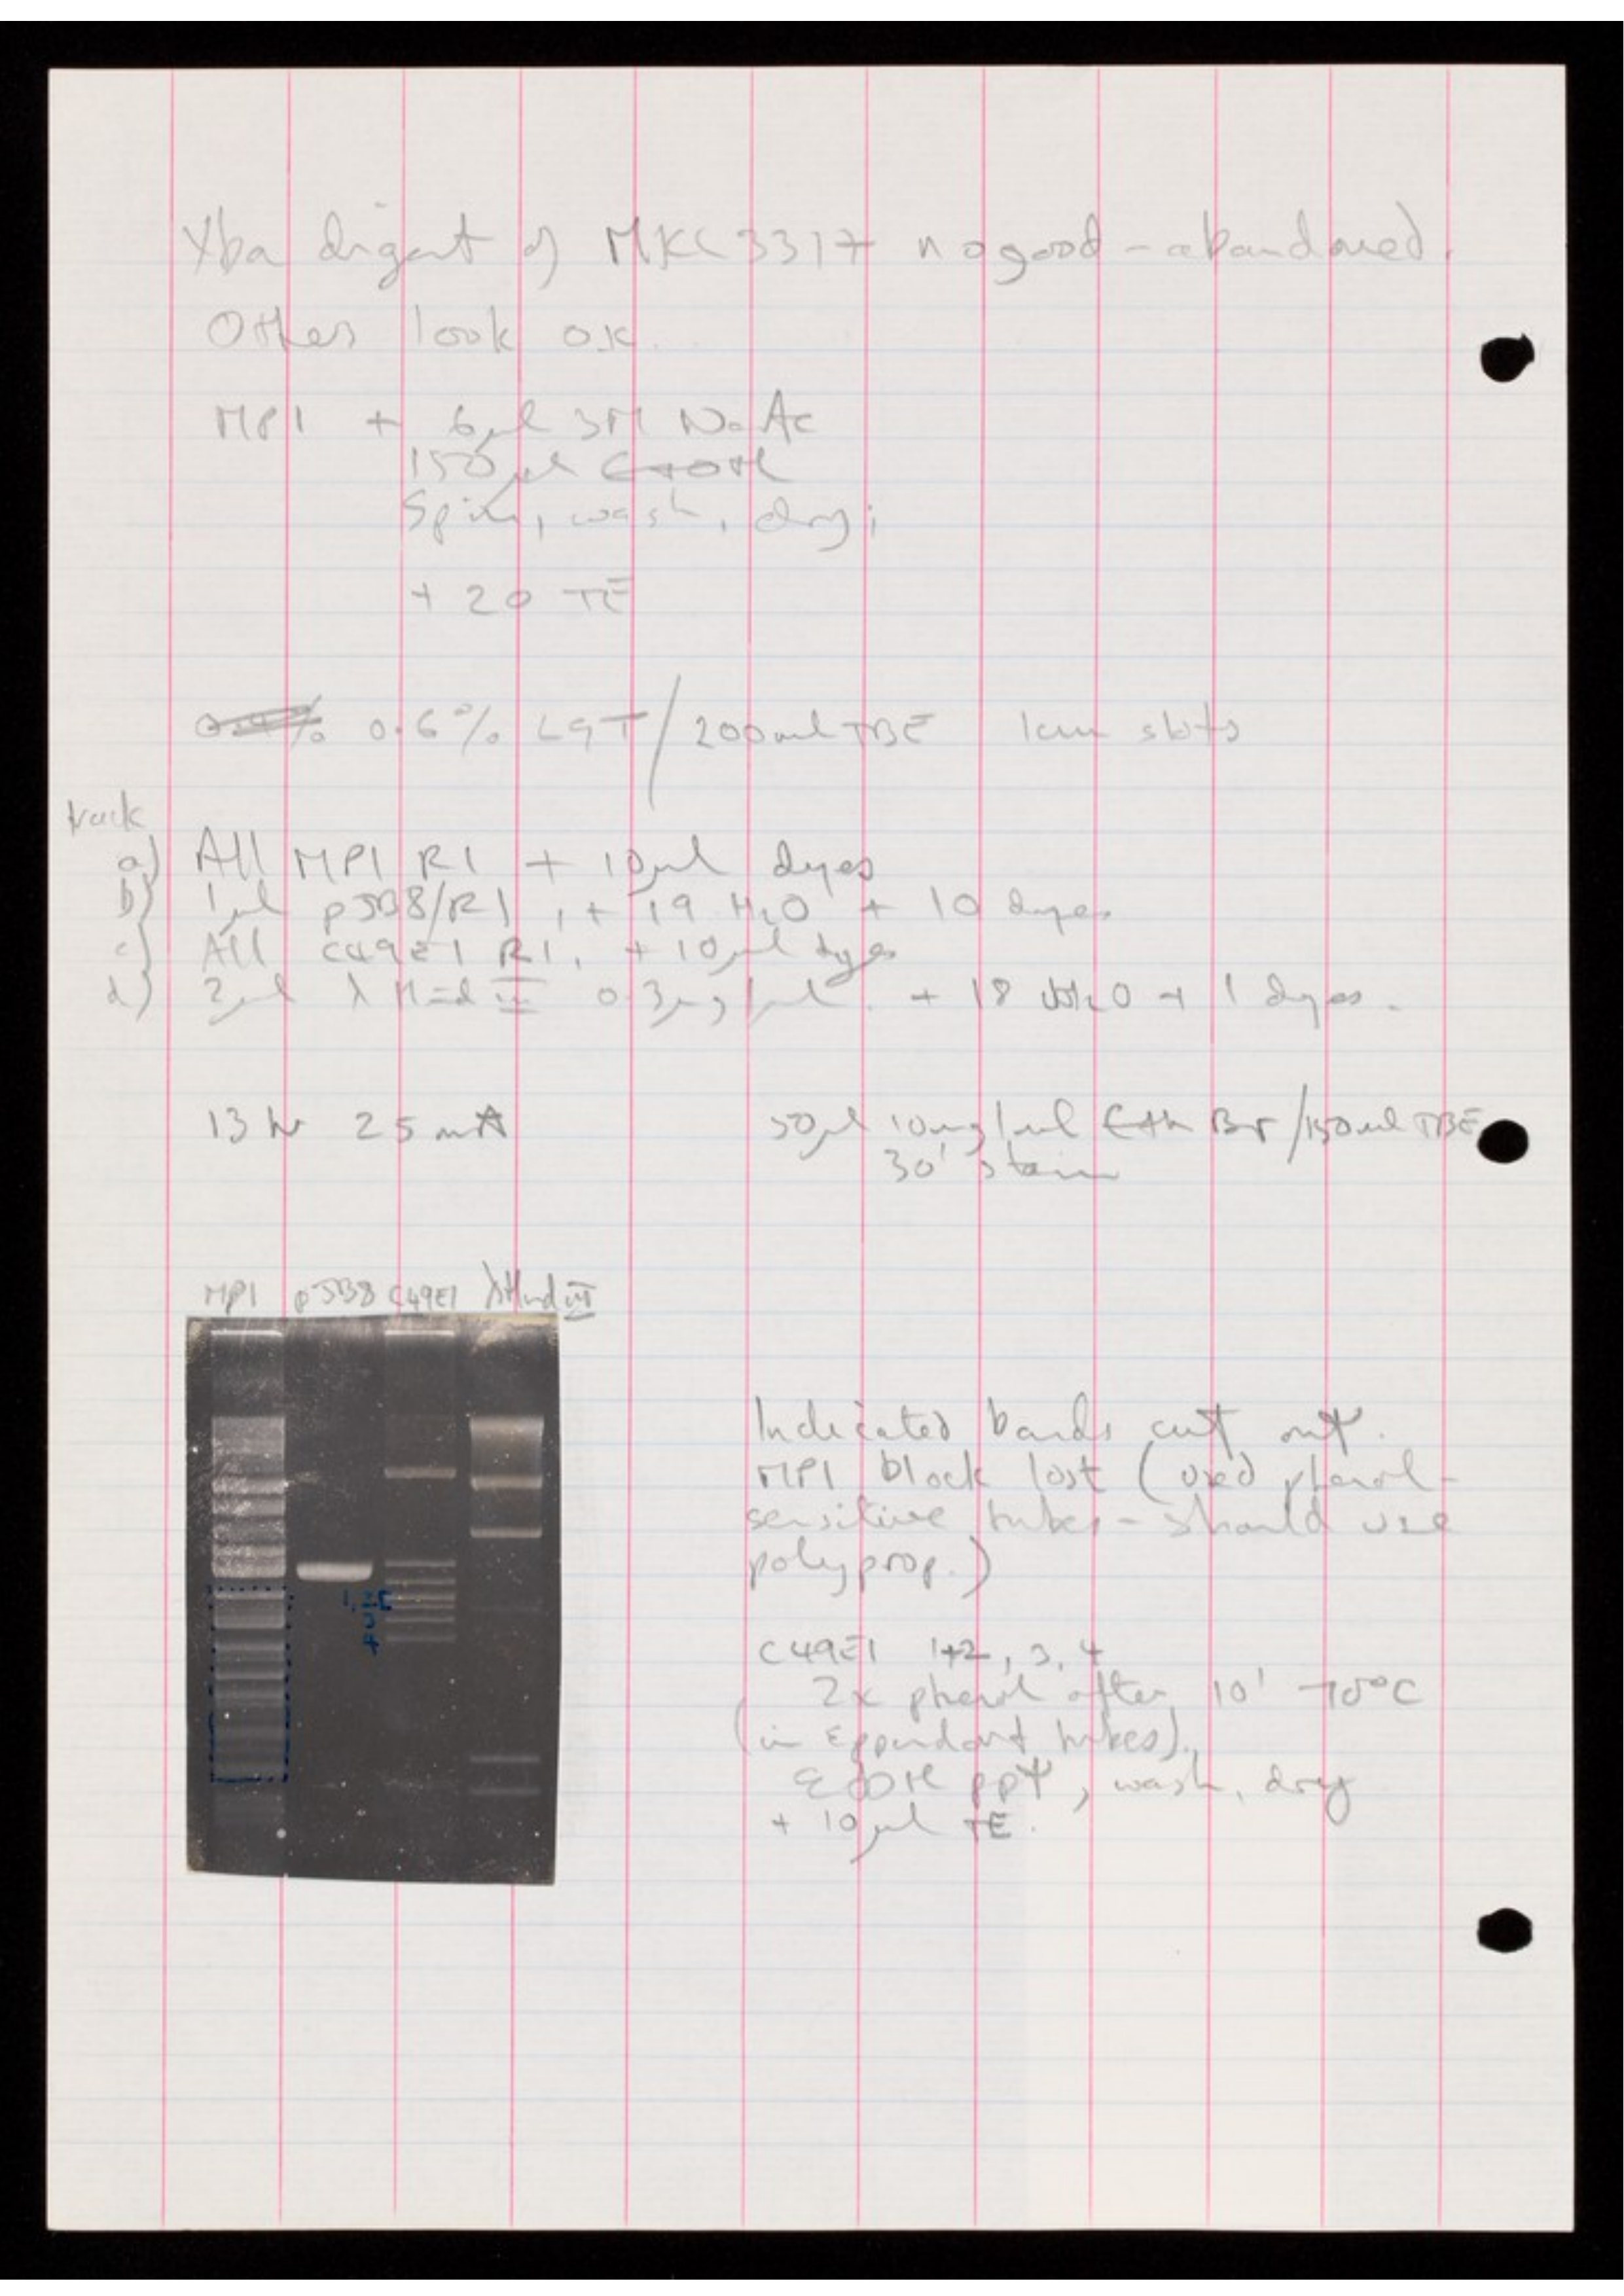 Xba digest of MKC3317 no good - abandoned.
Others look OK.
MP1 + 6µl 3M NaAc
150µl EtOH
Spin, wash, dry;
+ 20 TE
0.6% LGT / 200ml TBE 1cm slots
track
a) All MP1 R1 + 10µl dyes
b) 1µl pJB8/R1, + 19 H2O + 10 dyes
c) All C49E1 R1, + 10µl dyes
d) 2µl λ Hind III 0.3µg/µl. + 18 H2O + 1 dyes.
13 hr 25mA 50µl 10mg/ml Eth Br / 150ml TBE
30' stain
MP1 pJB8 C49E1 λHind III
Indicated bands cut out.
MP1 block lost (used phenol-
sensitive tubes - should use
polyprop.)
1, 2
3
4
C49E1 1+2, 3, 4
2x phenol after 10' 70°C
(in Eppendorf tubes).
EtOH ppt, wash, dry
+ 10µl TE.